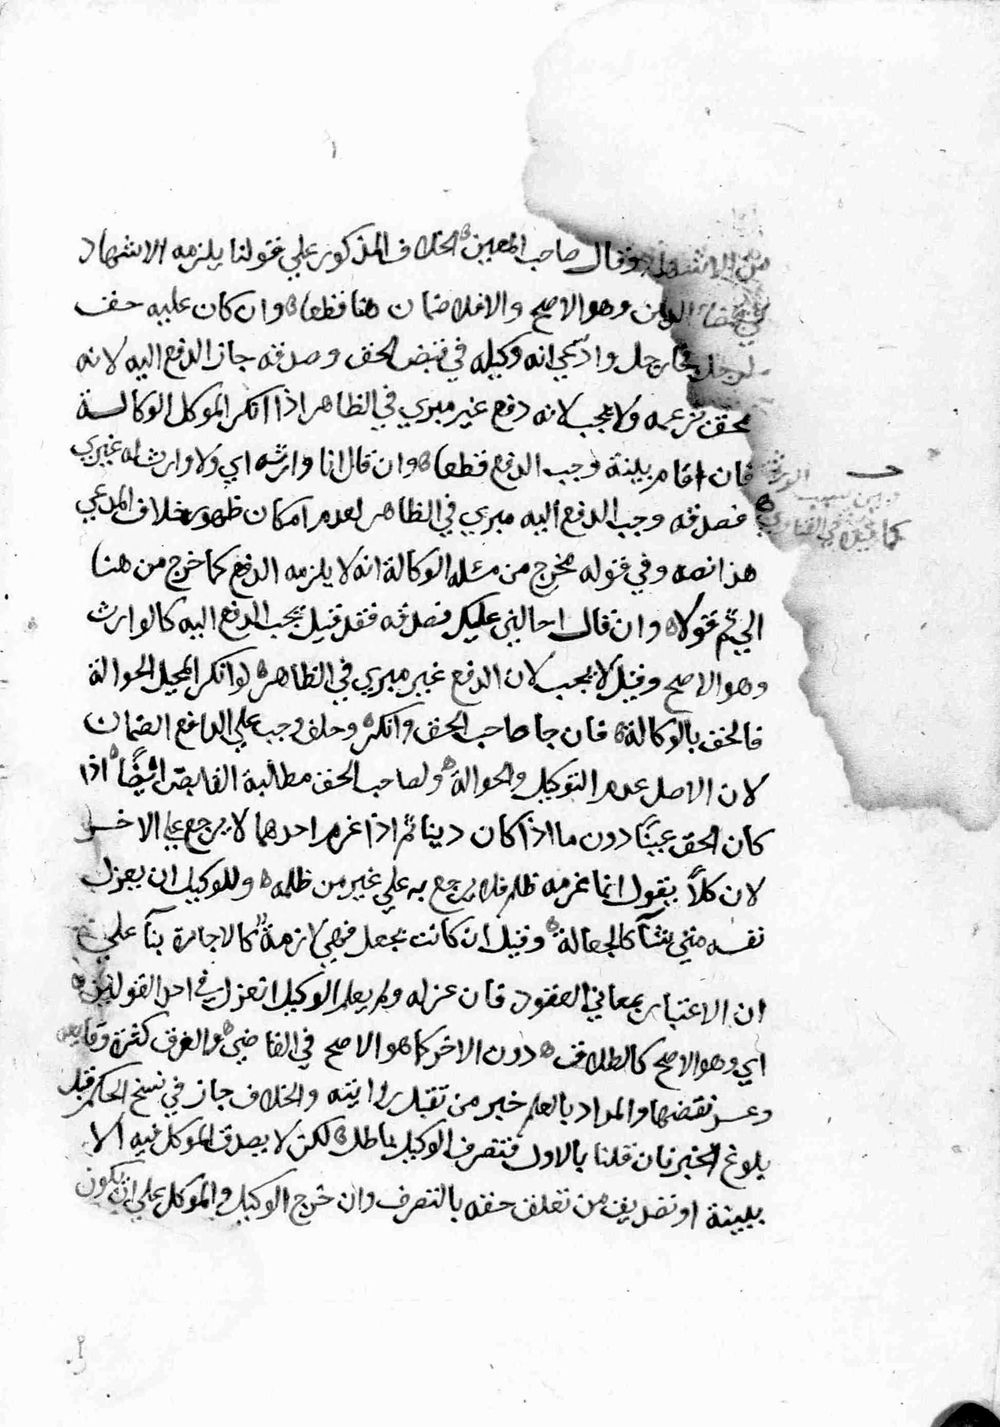 من الاشهاد وقال صاحب المعين الخلاف المذكور علي قولنا يلزمه الاشهاد
في الدين وهو الاصح والا فلا ضمان هنا قطعا وان كان عليه حق
لرجل فجا رجل وادعي انه وكيله في قبض الحق وصدقه جاز الدفع اليه لانه
محق بزعمه ولا يجب لانه دفع غير مبري في الظاهر اذا انكر الموكل الوكالة
فان اقام بينة وجب الدفع قطعا وان قال انا وارثه اي ولا وارث له غيري
فصدقه وجب الدفع اليه مبري في الظاهر لعدم امكان ظهور خلاف المدعي
كما في الفتاوي
هذا نصه وفي قوله مخرج من مسئله الوكالة انه لا يلزمه الدفع كما خرج من هنا
الي ثم قولا وان قال احالني عليك فصدقه فقد قيل يجب الدفع اليه كالوارث
وهو الاصح وقيل لا يجب لان الدفع غير مبري في الظاهر لو انكر المحيل الحوالة
فالحق بالوكالة فان جا صاحب الحق وانكر وحلف وجب علي الدافع الضمان
لان الاصل عدم التوكيل والحوالة ولصاحب الحق مطالبة القابض ايضًا اذا
كان الحق عينًا دون ما اذا كان دينا ثم اذا غرم احدهما لا يرجع علي الاخر
لان كلاً يقول انما غرمه ظلم فلا يرجع به علي غير من ظلمه وللوكيل ان يعزل
نفسه متي شآ كالجعالة وقيل ان كانت بجعل فهي لازمة كالاجارة بنآ علي
ان الاعتبار بمعاني العقود فان عزله ولم يعلم الوكيل انعزل في احد القولين
اي وهو الاصح كالطلاق دون الاخر كما هو الاصح في القاضي والفرق كثرة وقايعه
وعسر نقضها والمراد بالعلم خبر من تقبل روايته والخلاف جاز في نسخ الحكم قبل
بلوغ الخبر فان قلنا بالاول فتصرف الوكيل باطل لكن لا يصدق الموكل فيه الا
ببينة او تصديق من تعلق حقه بالتصرف وان خرج الوكيل والموكل علي ان يكون